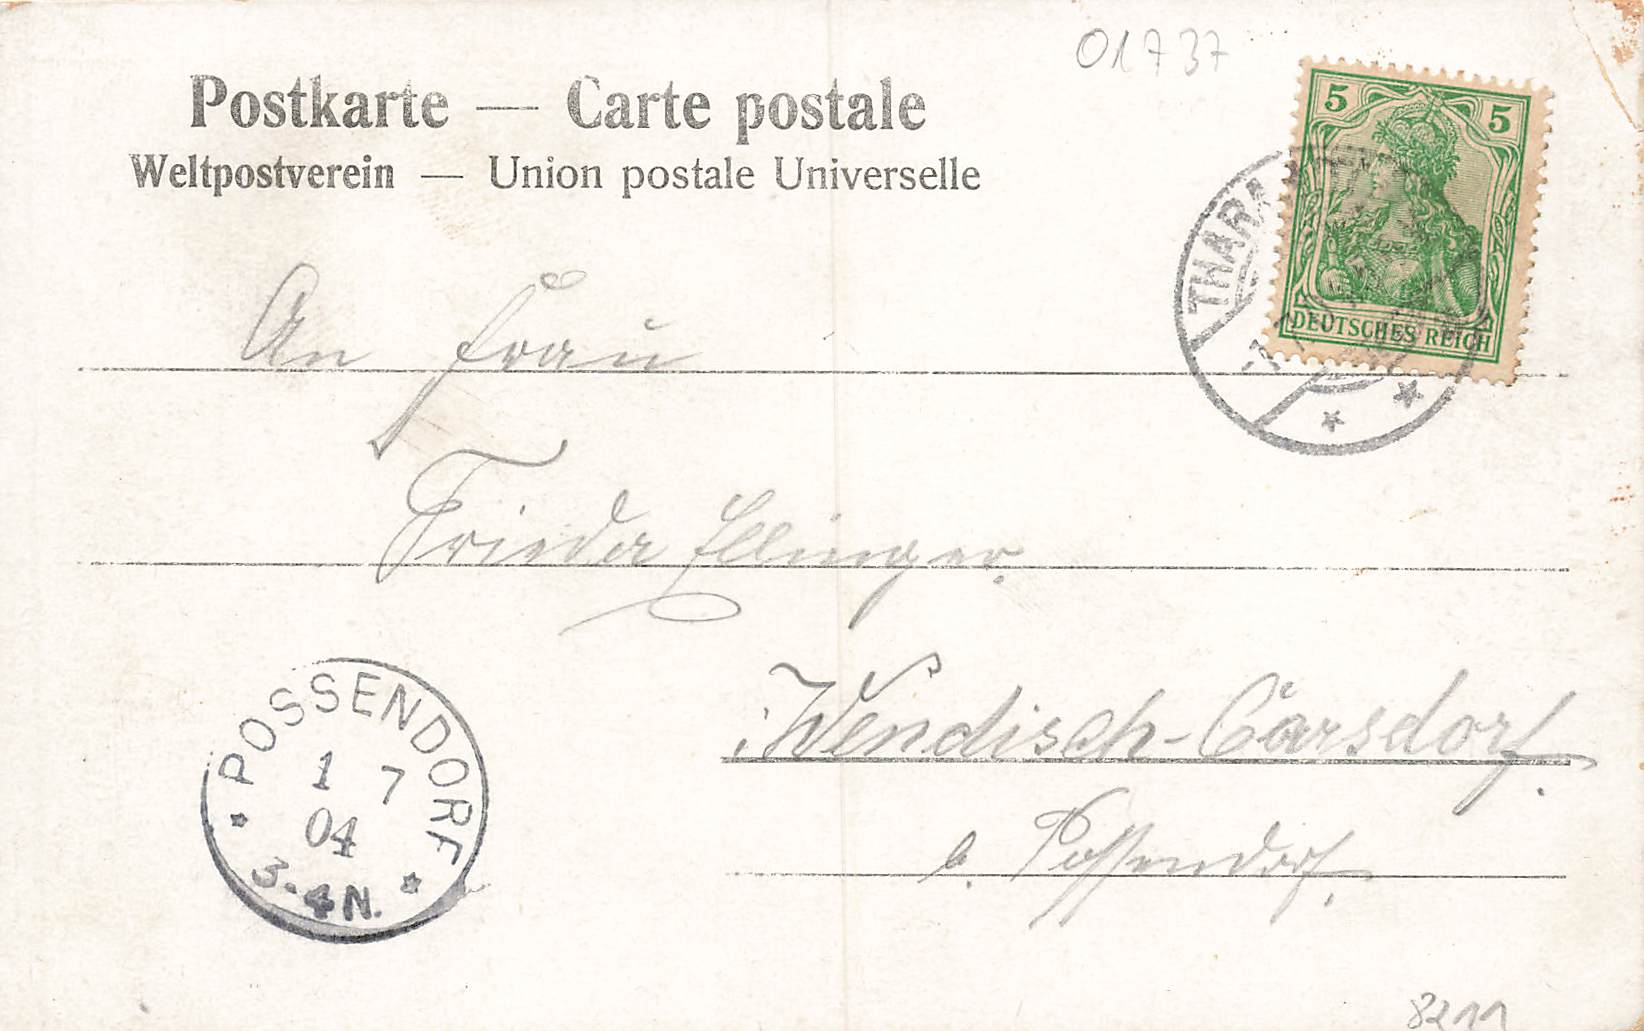 01737
Postkarte — Carte postale
Weltpostverein — Union postale Universelle
5 5
DEUTSCHES REICH
THARA
An Frau
Frieda Ellinger
Wendisch-Carsdorf.
b. Possendorf.
POSSENDORF
1 7
04
3-4N.
8211